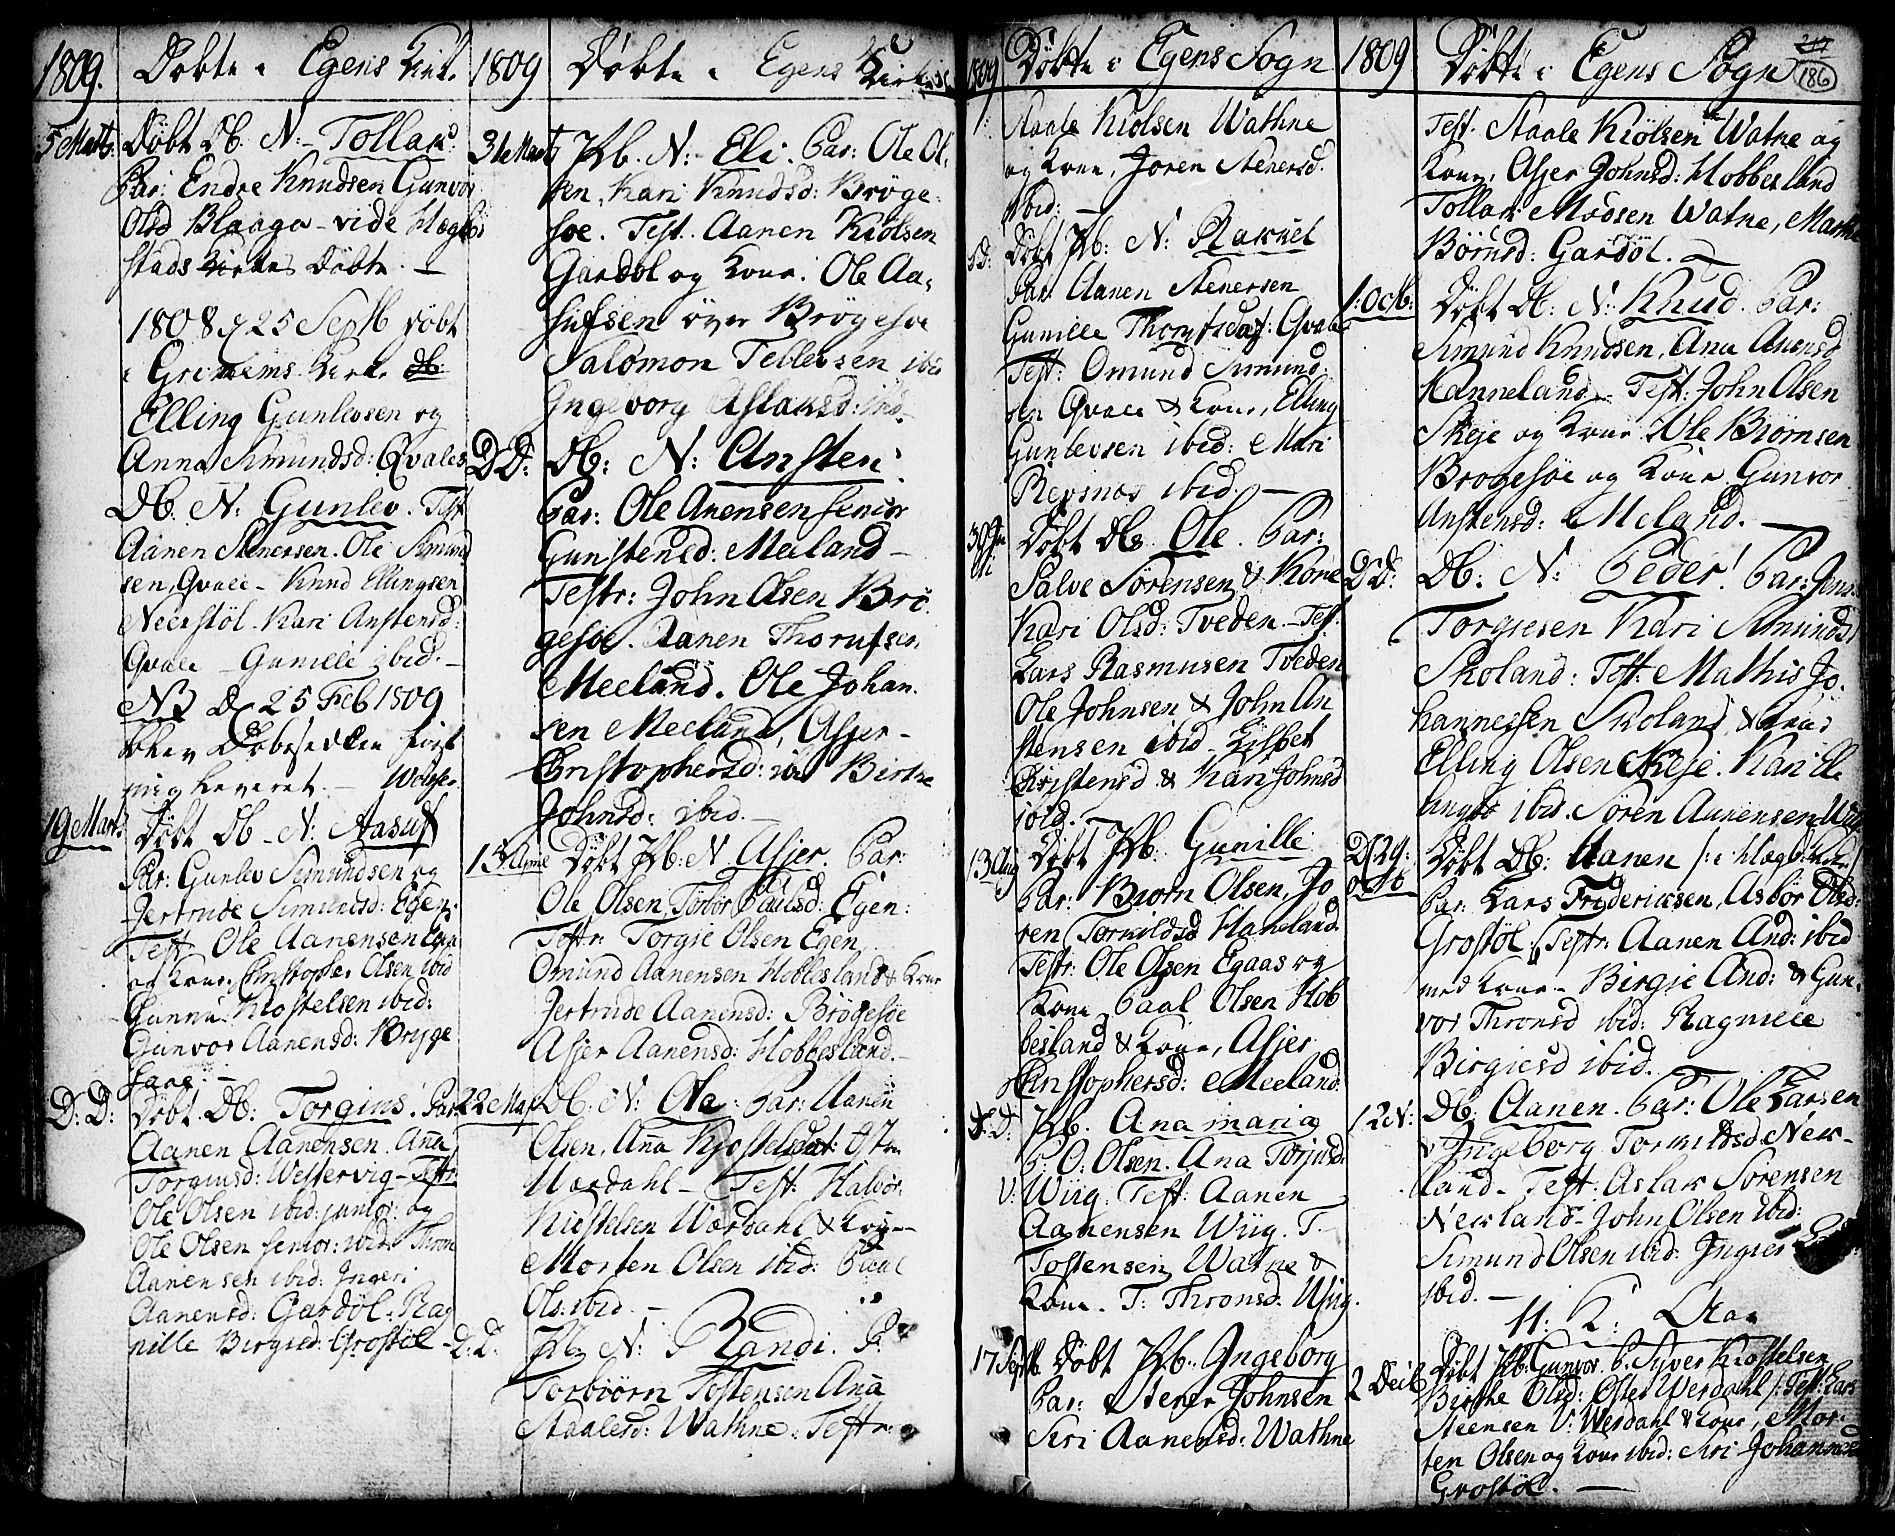 1809. Døbte i Egens Kirke
5 Marts: Døbt Db. N: Tollak.
Par: Endre Knudsen Gunvor
Olsd Blaaga - vide Hægbo
stads Kirkes Døbte. -
1808 d 25 Septb døbt
i Grimems Kirke Db:
Elling Gunlevsen og
Anna Simundsd: Qvales
Db. N: Gunlev. Test
Aanen Stenersen. Ole Simund
sen, Qvale - Knud Ellingsen
Neerstøl. Kari Anstensd:
Qvale - Gunille ibid. -
NB D. 25 Feb 1809
blev Døbesedlen først
mig leveret. -
19 Marts Døbt Db - N: Aasuf
Par: Gunlev Simundsen og
Jertrude Simundsd: Egen:
Test Ole Aanensen Egen
og Kone, Christopher Olsen ibid
Gunnu Kiostelsen ibid:
Gunvor Aanensd: Brygge
saae: -
D: D: Døbt Db: Torgius. Par
Aanen Aanensen. Anna
Torgiusd: Westervig - Testr
Ole Olsen ibid: junior: og
Ole Olsen senior: ibid Thron
Aanensen ibid: Ingeri
Aanensd: Gardøl. Rag
nille Birgied: Grostøl -
1809 Døbte i Egens Kirke
31 Marts Pb. N: Eli. Par: Ole Ol,
sen, Kari Knudsd: Brøge-
søe. Test. Aanen Kiølsen
Gardøl og Kone. Ole Aa,
sufsen over Brøgesøe
Salomon Tellevsen ibid
Ingevorg Aslaksd: ibid
D. D: Db: N: Ansten:
Par: Ole Anensen senior
Gunstensd: Meeland -
Testr: John Olsen Brø
gesøe. Aanen Thorufsen
Meeland. Ole Johan.
sen Meeland, Asjer -
Christophersd: ibid Birthe
Johnsd: ibid. -
Døbt Pb: N Asjer. Par:
Ole Olsen, Torbor Paulsd: Egen:
Testr: Torgie Olsen Egen
Omund Aanensen Hobbesland & Kone
Jertrude Aanensd: Brøgesøe
Asjer Aanensd: Hobbesland. -
22 Maj Db: N: Ole. Par: Aanen
Olsen, Anna Kjostelsdat: Østre
Wærdahl - Test. Halvor
Kiostelsen Wærdahl & Kone
Morten Olsen ibid: Paal
Ols: ibid. -
D. D. Pb: N: Randi. P:
Torbiørn Tostensen Anna
Staalesd: Wathne. Testr:
1809 Døbte i Egens Sogn
Staale Kiølsen Wathne
og Kone, Joren Stenersd:
ibid: -
D: Døbt Pb: N: Rakuel
Par: Aanen Stenersen
Gunille Thorufsdat: Qvale
Test: Omund Simund
sen Qvale & Kone, Elling
Gunlevsen ibid: Mari
Repsnos ibid. -
Døbt Db Ole. Par:
Salve Sørensen & Kone
Kari Olsd: Tveden. Test.
Lars Rasmusen Tveden
Ole Johnsen & John An
stensen ibid - Lisbet
Christensd & Kari Johnsd
ibid. -
13 Aug Døbt Pb: Gunille
Par: Biorn Olsen, Jo
ren Torkildsd Haneland.
Testr: Ole Olsen Egaas og
Kone Paal Olsen Hob
besland & Kone, Asjer
Christophersd: Meeland.
D. D: Pb. Ana maria
P. O: Olsen. Ana Torjusd:
V: Wiig. Test: Aanen
Aanensen Wiig. T.
Tostensen Watne &
Kone. T: Thronsd. Wiig.
17 Septb Døbt Pb: Ingeborg
Par: Stener Johnsen
Siri Aanensd: Wathne
1809 Døbte i Egens Sogn
217
186
Test. Staale Kiølsen Watne og
Kone, Asjer Johnsd: Hobbesland
Tollak Madsen Watne, Marthe
Børnsd: Gardøl. -
1: Octb: Døbt Db: N: Knud. Par:
Simund Knudsen, Ana Anensd
Hanneland. Test: John Olsen
Skeje og Kone. Ole Biørnsen
Brogesøe og Kone Gunvor
Anstensd: Meland. -
D D: Db: N: Peder! Par: Jens
Torgiesen Kari Simundsd
Skoland: Test: Mathis Jo-
hannessen Skoland & Kone
Elling Olsen Skeje. Kari El
lingsd ibid. Søren Aanensen Wiig
D. 29: Octb Døbt Db: Aanen
Par: Lars Friderichsen, Asbor Olsd:
Grostøl. Testr: Aanen And: ibid
med Kone - Birgie And: & Gun
vor Thronsd ibid: Ragnille
Birgiesd ibid.
12 N: Db: Aanen. Par: Ole Larsen
Ingeborg Tormodsd New-
land - Test: Aslak Sørensen
Newland - John Olsen ibid:
Simund Olsen ibid: Ingier
ibid. -
H: K:
2 Decb Døbt Pb: Gunvor. P. Syver Kiostelsen
Birthe Olsd: Øster Werdahl /: Test: Lars
Steensen V: Werdahl & Kone, Mor-
ten Olsen og Kone ibid: Siri Johannesd
Grostøl. -